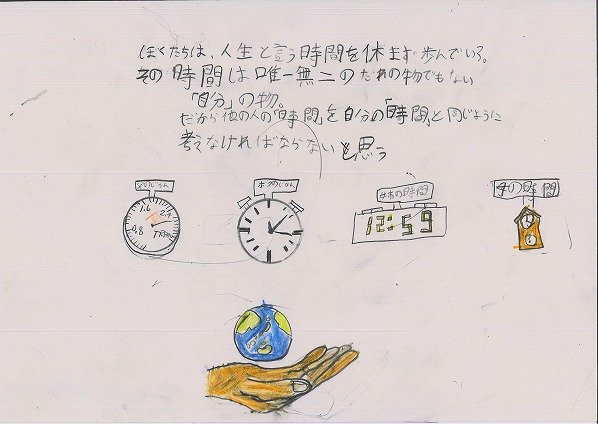 ぼくたちは、人生と言う時間を休まず歩んでいる。
その時間は唯一無二のだれの物でもない
「自分」の物。
だから他の人の「時間」を自分の「時間」と同じように
考えなければならないと思う
ボクのじかん
の時間
の時間
1.6
2.4
0.8
12:59